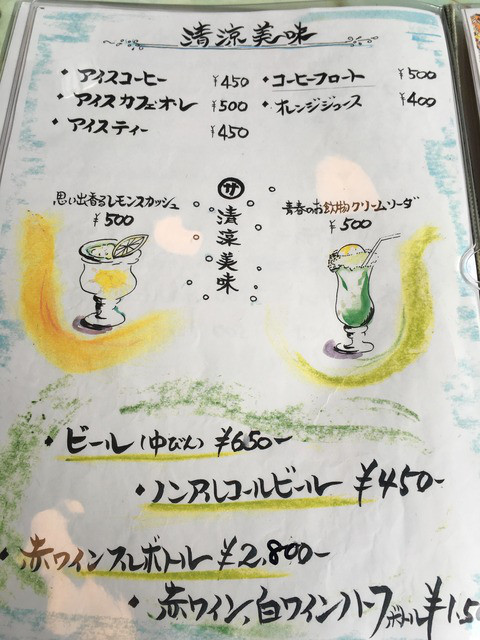 清涼美味
・アイスコーヒー ¥450
・コーヒーフロート ¥500
・アイスカフェオーレ ¥500
・オレンジジュース ¥400
・アイスティー ¥450
思い出香るレモンスカッシュ
¥500
サ
清涼美味
青春のお飲物クリームソーダ
¥500
・ビール(中びん) ¥650-
・ノンアルコールビール ¥450-
・赤ワインフルボトル ¥2,800-
・赤ワイン、白ワインハーフボトル